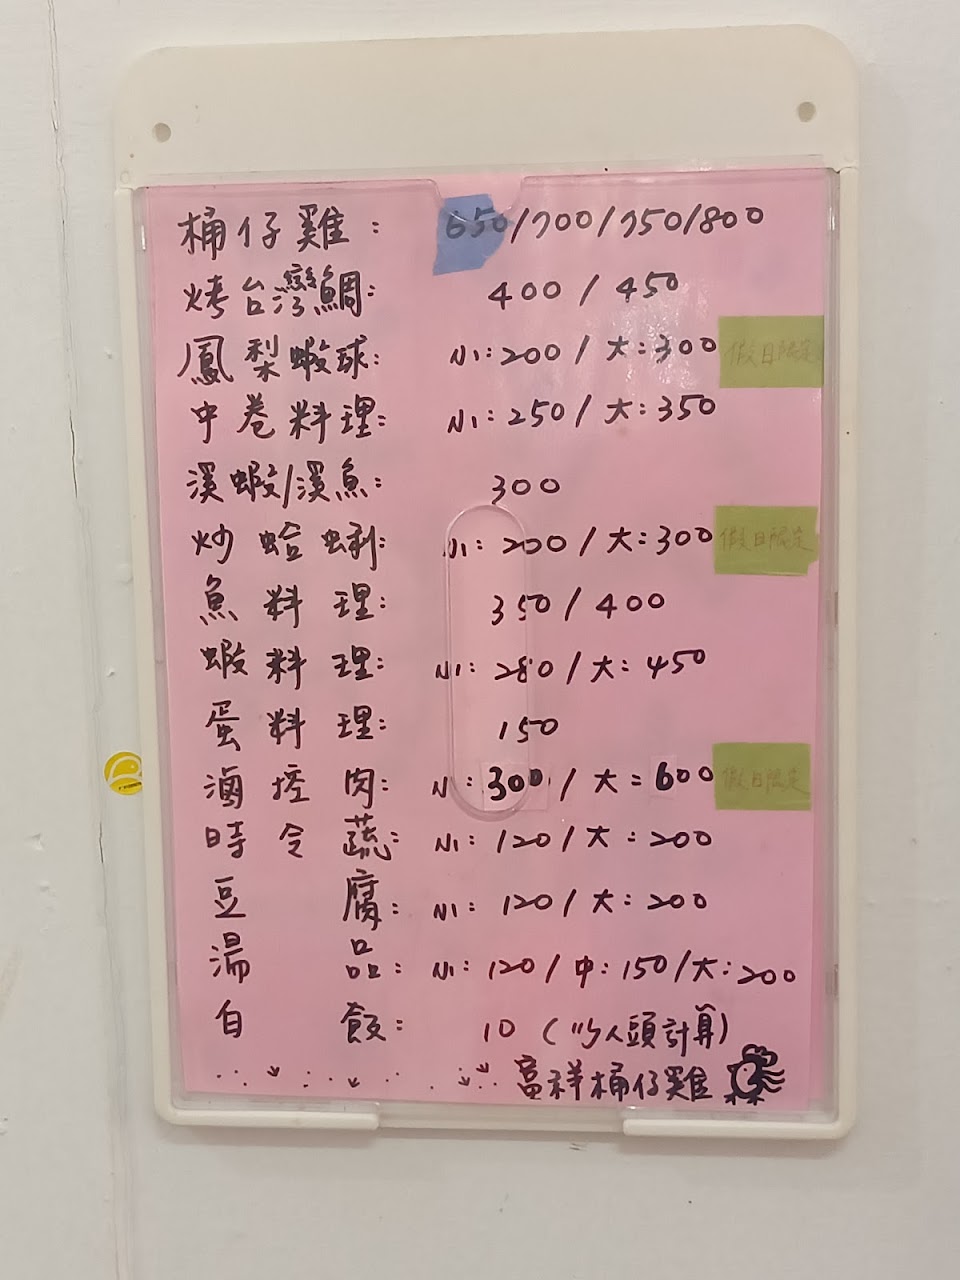 桶仔雞： 650/700/750/800
烤台灣鯛： 400 / 450
鳳梨蝦球： 小：200 / 大：300 假日限定
中卷料理： 小：250 / 大：350
溪蝦/溪魚： 300
炒蛤蜊： 小：200 / 大：300 假日限定
魚料理： 350 / 400
蝦料理： 小：280 / 大：450
蛋料理： 150
滷控肉： 小：300 / 大：600 假日限定
時令蔬： 小：120 / 大：200
豆腐： 小：120 / 大：200
湯品： 小：120 / 中：150 / 大：200
白飯： 10 (以人頭計算)
富祥桶仔雞